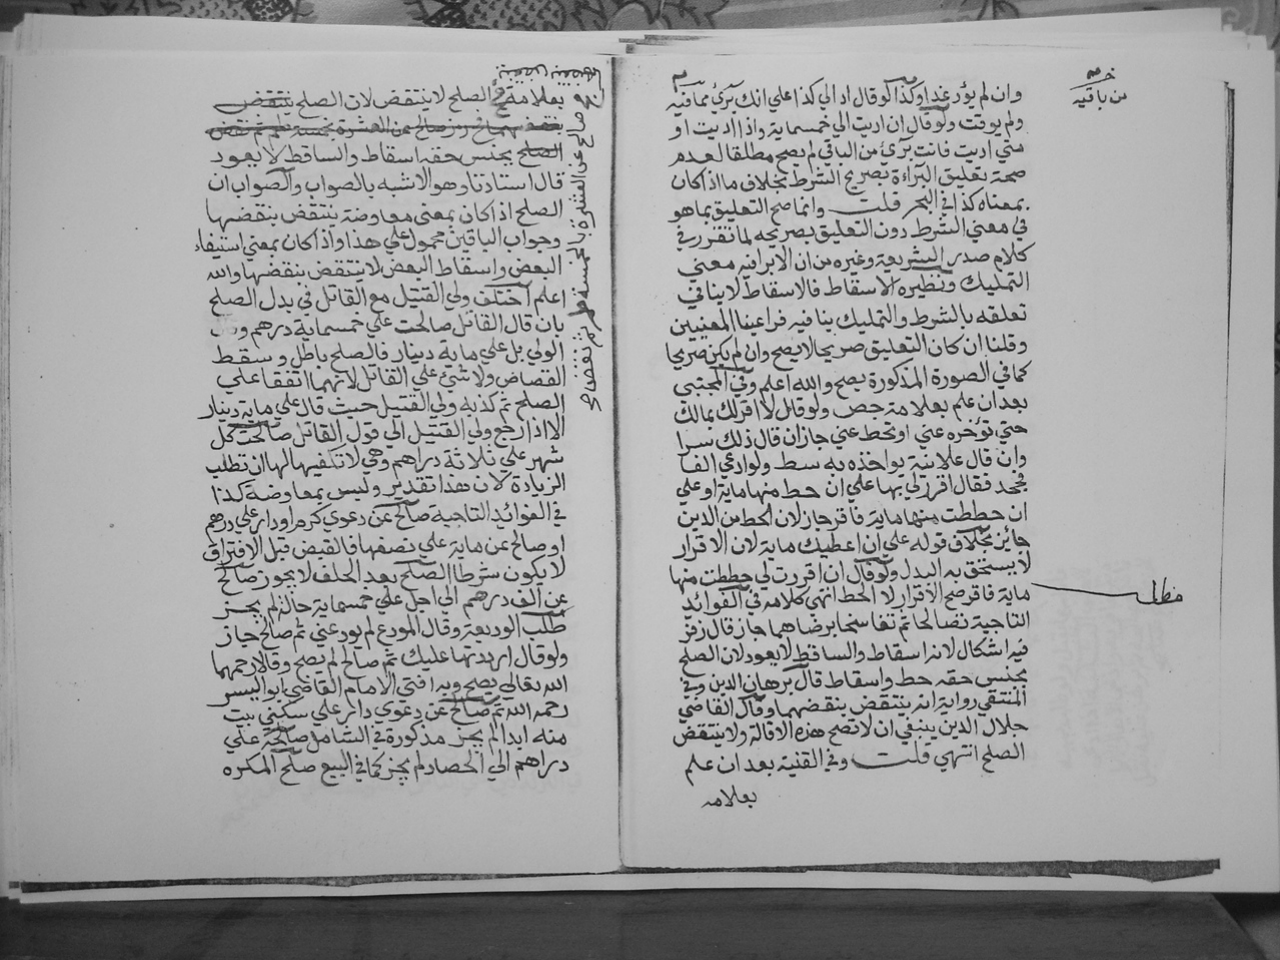 وان لم يؤد غدا وكذا لو قال ادالي كذا علي انك بري مما فيه
من باقيه
ولم يوقت ولو قال ان اديت الي خمسماية واذا اديت او
متي اديت فانت بري من الباقي لم يصح مطلقا لعدم
صحة تعليق البراءة بصريح الشرط بخلاف ما اذا كان
بمعناه كذا في البحر قلت وانما صح التعليق بما هو
في معني الشرط دون التعليق بصريحه لما تقرر في
كلام صدر الشريعة وغيره من ان الابرا فيه معني
التمليك ونظيره الاسقاط فالاسقاط لا ينافي
تعلقه بالشرط والتمليك ينافيه فراعينا المعنيين
وقلنا ان كان التعليق صريحا لا يصح وان لم يكن صريحا
كما في الصورة المذكورة يصح والله اعلم وفي المجتبي
بعد ان علم بعلامة جص ولو قال لا اقر لك بمالك
حتي تؤخره عني او تحط عني جاز ان قال ذلك سرا
وان قال علانية يواخذ به سط ولو ادعي الفا
فجحد فقال اقرر لي بها علي ان حط منها ماية او علي
ان حططت منها ماية فاقر جاز لان الحط من الدين
جائز بخلاف قوله علي ان اعطيك ماية لان الاقرار
لا يستحق به البدل ولو قال ان اقررت لي حططت منها
ماية فاقر صح الاقرار لا الحط انتهي كلامه في الفوائد
مطلب
التاجية تصالحا ثم تفاسخا برضاهما جاز قال زفر
فيه اشكال لانه اسقاط والساقط لا يعود لان الصلح
بجنس حقه حط واسقاط قال برهان الدين وفي
المنتقي رواية انه ينتقض بنقضهما وقال القاضي
جلال الدين ينبغي ان لا تصح هذه الاقالة ولا ينتقض
الصلح انتهي قلت وفي القنية بعد ان علم
بعلامه
بعلامة الصلح لا ينتقض لان الصلح ينتقض
الصلح بجنس حقه اسقاط والساقط لا يعود
قال استاذنا وهو الاشبه بالصواب والصواب ان
الصلح اذا كان بمعني معاوضة ينتقض بنقضها
وجواب الباقين محمول علي هذا واذا كان بمعني استيفاء
البعض واسقاط البعض لا ينتقض بنقضها والله
اعلم اختلف ولي القتيل مع القاتل في بدل الصلح
بان قال القاتل صالحت علي خمسماية درهم
الولي بل علي ماية دينار فالصلح باطل وسقط
القصاص ولا شئ علي القاتل لانهما اتفقا علي
الصلح ثم كذبه ولي القتيل حيث قال علي ماية دينار
الا اذا رجع ولي القتيل الي قول القاتل صالحت كل
شهر علي ثلاثة دراهم وهي لا تكفيها لها ان تطلب
الزيادة لان هذا تقدير وليس بمعاوضة كذا
في الفوائد التاجية صالح عن دعوي كرم او دار علي درهم
او صالح عن ماية علي نصفها فالقبض قبل الافتراق
لا يكون شرطا الصلح بعد الحلف لا يجوز صالح
عن الف درهم الي اجل علي خمسماية حالة لم يجز
طلب الوديعة وقال المودع لم يودعني ثم صالح جاز
ولو قال رددتها عليك ثم صالح لم يصح وقالا رحمهما
الله تعالي يصح وبه افتي الامام القاضي ابو اليسر
رحمه الله ثم صالح عن دعوي دار علي سكني بيت
منه ابدا لم يجز مذكورة في الشامل صالحه علي
دراهم الي الحصاد لم يجز كما في البيع صلح المكره
صالح عن العشرة بالخمسة